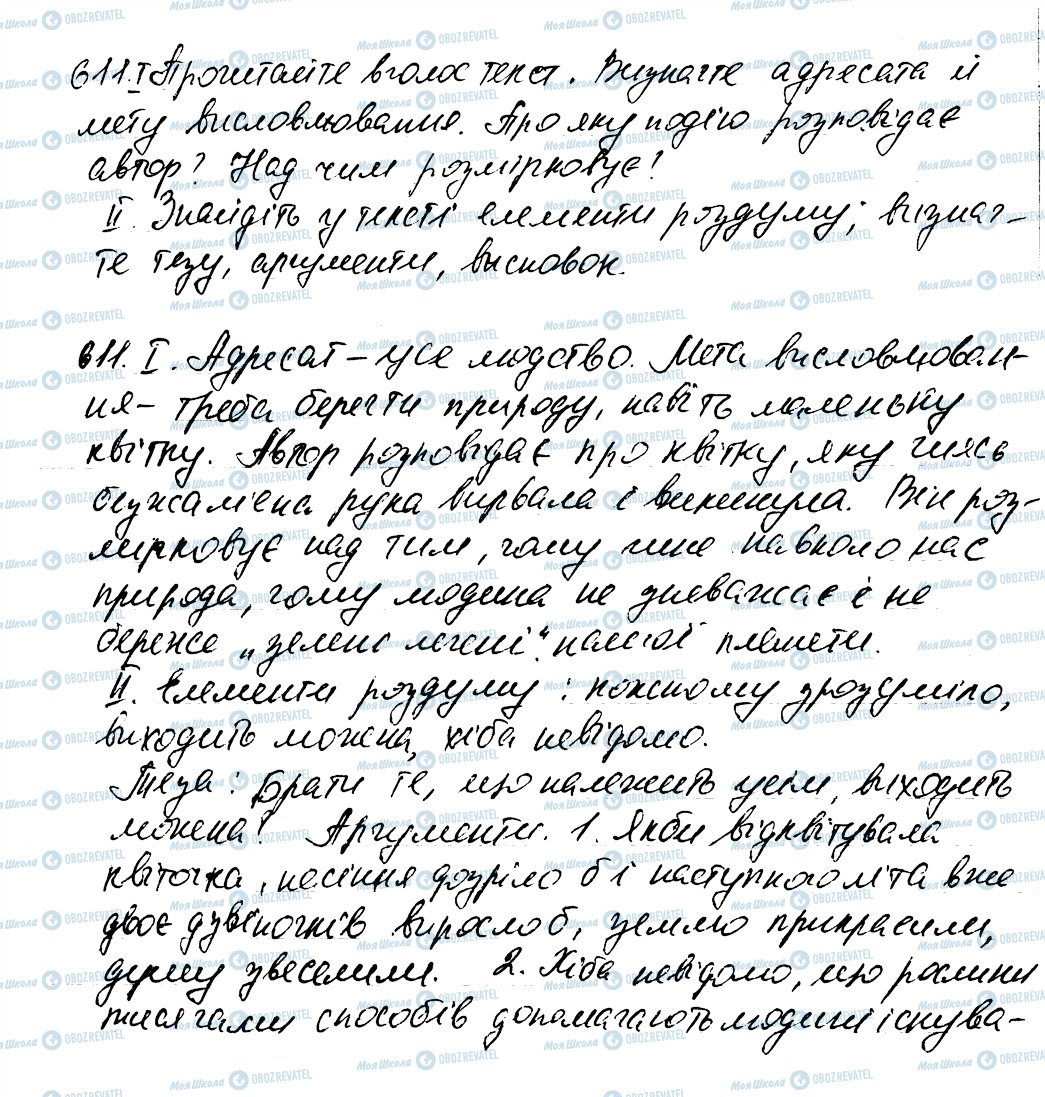 611.I Прочитайте вголос текст. Визначте адресата й
мету висловлювання. Про яку подію розповідає
автор? Над чим розмірковує?
II. Знайдіть у тексті елементи роздуму; визнач-
те тезу, аргументи, висновок.
611. I. Адресат – усе людство. Мета висловлюван-
ня – треба берегти природу, навіть маленьку
квітку. Автор розповідає про квітку, яку чиясь
бузжам'яна рука вирвала і викинула. Він роз-
мірковує над тим, чому гине навколо нас
природа, чому людина не зневажає і не
береже „зелені легені" нашої планети.
II. Елементи роздуму: кожному зрозуміло,
виходить можна, хіба невідомо.
Теза: Брати те, що належить усім, виходить
можна? Аргументи. 1. Якби відквітувала
квіточка, насіння дозріло б і наступного літа вже
двоє дзвіночків виросло б, землю прикрасили,
душу звеселили. 2. Хіба невідомо, що рослини
тисячами способів допомагають людині існува-